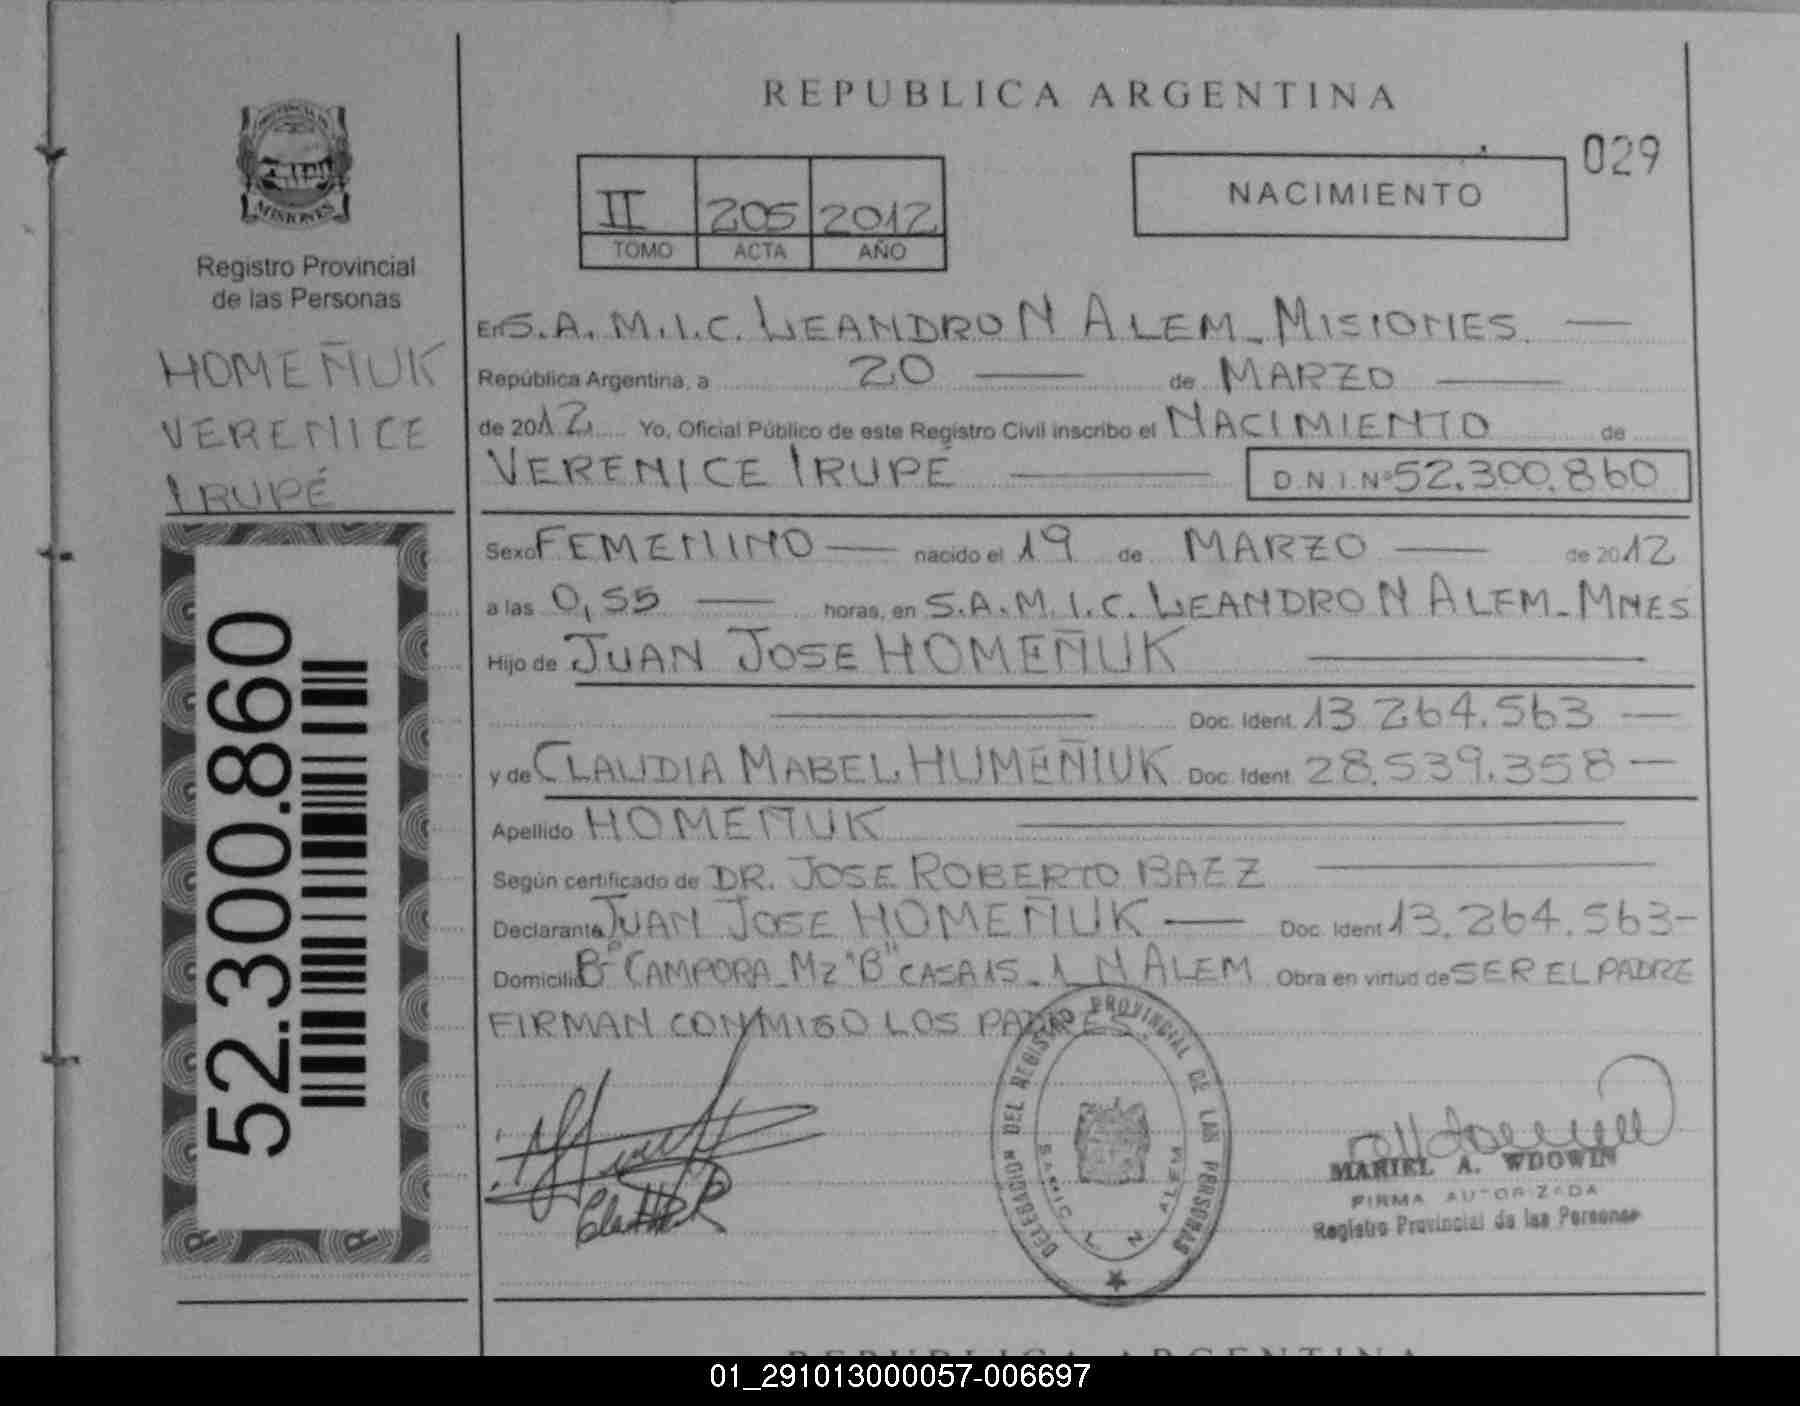 REPUBLICA ARGENTINA
029
NACIMIENTO
II 205 2012
TOMO ACTA AÑO
MISIONES
Registro Provincial
de las Personas
HOMEÑUK
VERENICE
IRUPÉ
52.300.860
En S.A.M.I.C. LEANDRO N ALEM - MISIONES.
República Argentina, a 20 de MARZO
de 2012 Yo, Oficial Público de este Registro Civil inscribo el NACIMIENTO de
VERENICE IRUPÉ D.N.I.Nº 52.300.860
Sexo FEMENINO nacido el 19 de MARZO de 2012
a las 0,55 horas, en S.A.M.I.C. LEANDRO N ALEM - MNES
Hijo de JUAN JOSE HOMEÑUK
Doc. Ident. 13.264.563
y de CLAUDIA MABEL HUMEÑIUK Doc. Ident. 28.539.358
Apellido HOMEÑUK
Según certificado de DR. JOSE ROBERTO BAEZ
Declarante JUAN JOSE HOMEÑUK Doc. Ident 13.264.563-
Domicilio Bº CAMPORA - Mz "B" CASA 15 - L N ALEM Obra en virtud de SER EL PADRE
FIRMAN CONMIGO LOS PADRES.
DELEGACION DEL REGISTRO PROVINCIAL DE LAS PERSONAS
SAMIC L. N. ALEM
MARIEL A. WDOWIN
FIRMA AUTORIZADA
Registro Provincial de las Personas
REPUBLICA ARGENTINA
01_291013000057-006697